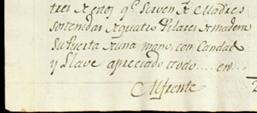 tres Aestos q.e sirven A Madres
sostenidas Aquatro Pilares Amadera
su Puerta Auna mano, con Candad
y Llave apreciado todo .... en...
Alfrente